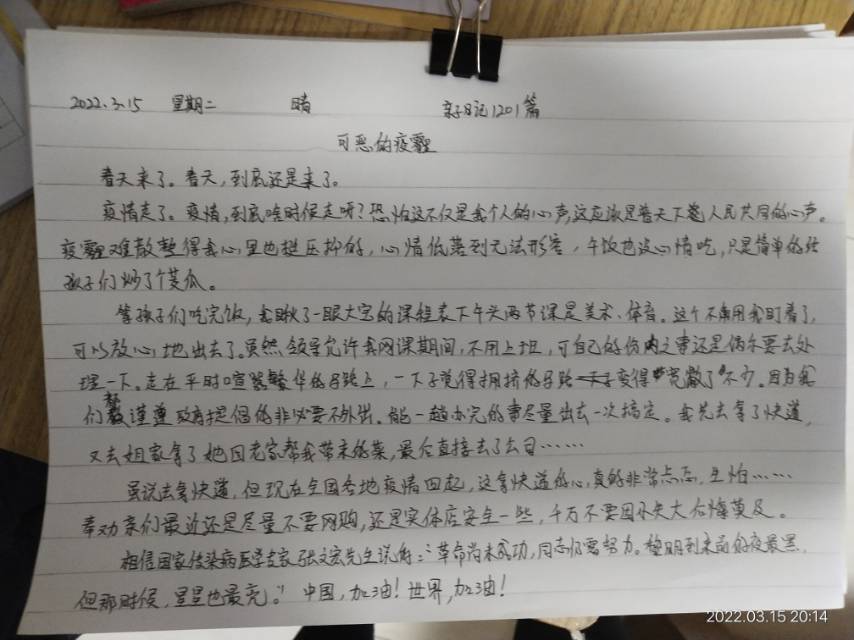 2022.3.15 星期二 晴 亲子日记1201篇
可恶的疫霾
春天来了。春天,到底还是来了。
疫情走了。疫情,到底啥时候走呀?恐怕这不仅是我个人的心声,这应该是普天下人民共同的心声。
疫霾难散整得我心里也挺压抑的,心情低落到无法形容,午饭也没心情吃,只是简单的给
孩子们炒了个芠瓜。
等孩子们吃完饭,我瞅了一眼大宝的课程表下午头两节课是美术、体育。这个不用我盯着了,
可以放心地出去了。虽然领导允许我网课期间,不用上班,可自己的份内之事还是偶尔要去处
理一下。走在平时喧嚣繁华的马路上,一下子觉得拥挤的马路变得"宽敞了"不少。因为我
们都谨遵政府提倡的非必要不外出。能一趟办完的事尽量出去一次搞定。我先去拿了快递,
又去姐家拿了她回老家帮我带来的菜,最后直接去了公司……
虽说去拿快递,但现在全国各地疫情四起,这拿快递的心,真的非常忐忑,生怕……
奉劝亲们最近还是尽量不要网购,还是实体店安全一些,千万不要因小失大后悔莫及。
相信国家传染病医学专家张文宏先生说的:"革命尚未成功,同志仍需努力。黎明到来前的夜最黑,
但那时候,星星也最亮。"中国,加油!世界,加油!
2022.03.15 20:14